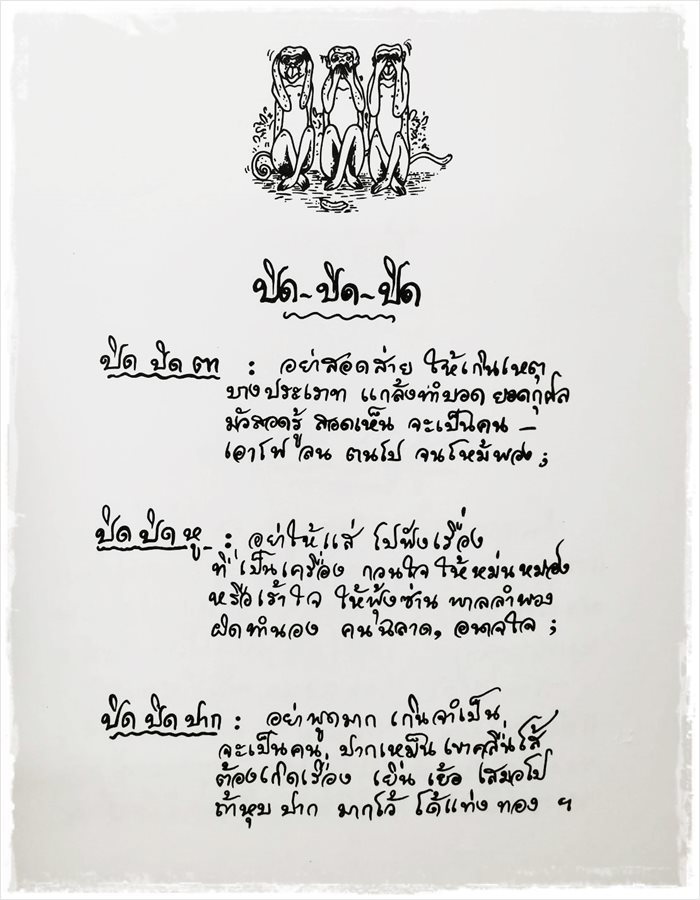 ปิด-ปิด-ปิด
ปิด ปิด ตา : อย่าสอดส่าย ให้เกินเหตุ
บางประเภท แกล้งทำบอด ยอดกุศล
มัวสอดรู้ สอดเห็น จะเป็นคน –
เอาไฟ ลน ตนไป จนไหม้พอง ;
ปิด ปิด หู : อย่าให้แส่ ไปฟังเรื่อง
ที่ เป็นเครื่อง กวนใจ ให้หม่นหมอง
หรือเร้าใจ ให้ฟุ้งซ่าน พาลลำพอง
ผิดทำนอง คนฉลาด, อนาถใจ ;
ปิด ปิด ปาก : อย่าพูดมาก เกินจำเป็น
จะเป็นคน ปากเหม็น เขาคลื่นไส้
ต้องเกิดเรื่อง เยิ่น เย้อ เสมอไป
ถ้าหุบ ปาก มากไว้ ได้แท่ง ทอง ฯ